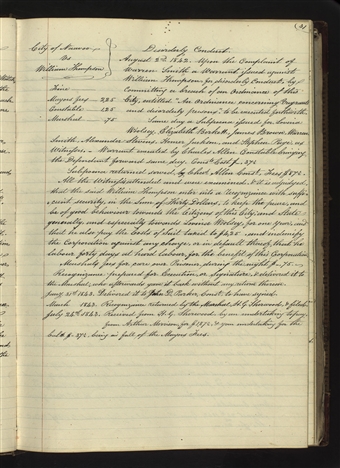 City of Nauvoo
vs
William Thompson
Fine
Mayors fees — 2.25
Constable — 1.25
Marshal — .75
Disorderly Conduct.
August 2nd 1842. Upon the Complaint of
Warren Smith a Warrant issued against
William Thompson for disorderly Conduct, by
Committing a breach of an Ordinance of this
City, entitled "An Ordinance concerning Vagrants
and disorderly persons," to be executed forthwith.
Same day a Subpoena issued for Lovina
Elizabeth Beckett, James Brown, Warren
Smith, Alexander Stevens, Homer Jackson, and Stephen Page, as
Witnesses. Warrant executed by Charles Allen Constable, bringing
the Defendant forward same day. Const. Cost
Subpoena returned served, by Chas. Allen Const. Fees
All the Witnesses attended and were examined. It is adjudged,
that the said William Thompson enter into a Recognizance with suffi-
cient security, in the Sum of thirty Dollars, to keep the peace, and
be of good behaviour towards the Citizens of this City and State
generally, and especially towards Lovina for one year, and
that he also pay the Costs of Suit taxed to and indemnify
the Corporation against any charge, or in default thereof, that he
labour forty days at hard labour, for the benefit of this Corporation
Marshal's fees for care over Prisoner, during the night
Recognizance prepared for Execution or Signature, & delivered it to
the Marshal, who afterwards gave it back without any return thereon
Delivered it to John D. Parker, Const. to have signed.
March 1843. Recognizance returned by the Marshal, H. G. Sherwood,
July 24th 1843. Received from H. G. Sherwood, by an undertaking to pay
from Arthur Morrison, for & your undertaking for the
bal. being in full of the Mayors Fees.